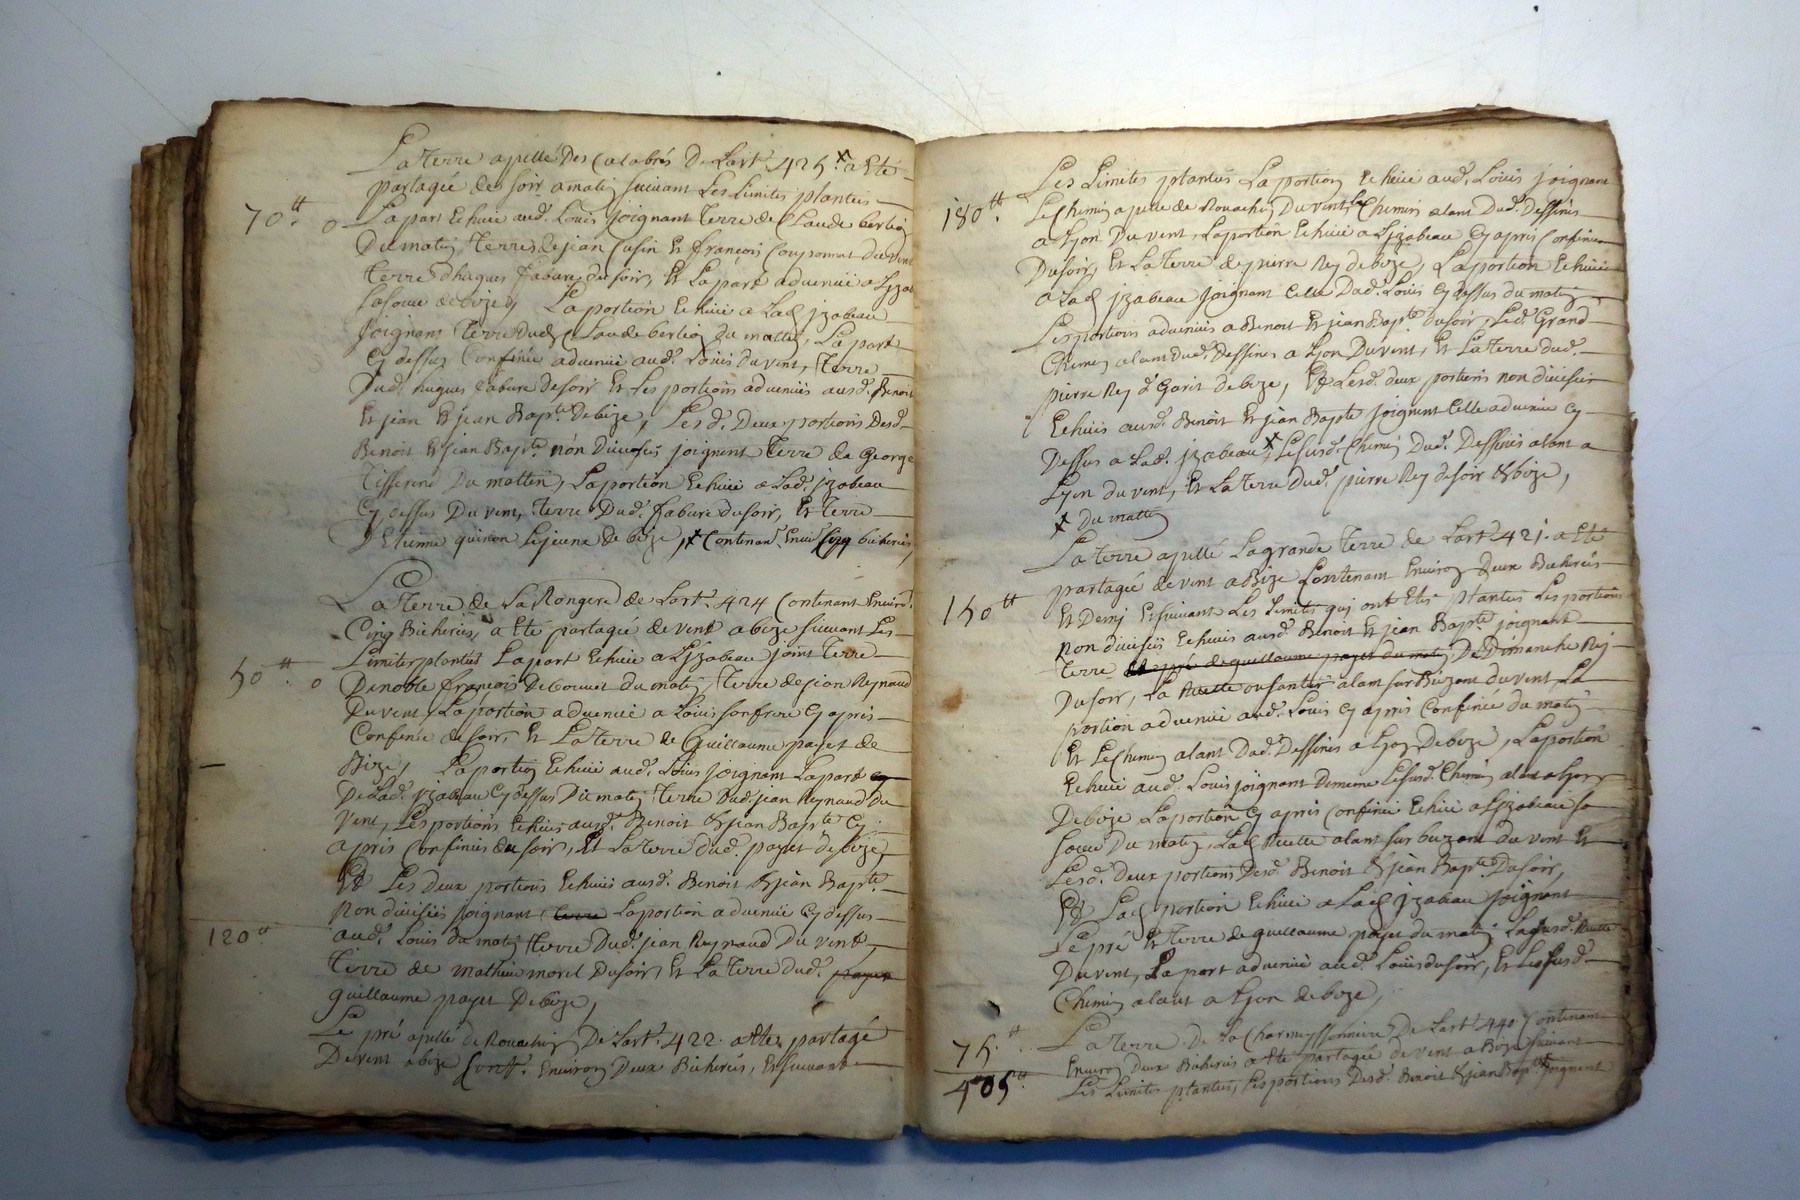 La Terre apellé Des Calabres De Lart. 425. x a Eté
partagée de soir a matin suivant Les Limites plantées
70 tt. o La part Echuë aud. Louis joignant Terre de Claude berlioz
Du matin, Terres de jean Cusin Et françois Couponnat du vent
Terre d'hugues fabure du soir, Et La part advenuë a Yzabeau
sa soeur de bize, La portion Echuë a Lad. jzabeau
joignant Terre dud. Claude berlioz du mattin, La part
Cy dessus Confinée advenuë aud. Louis du vent, Terre
Dud. hugues fabure de soir Et Les portions advenuës ausd. Benoit
Et jean Et jean Bapte De bize, Lesd. Deux portions Desd.
Benoit Et jean Bapte non Divisées joignent Terre de George
Tifferend Du mattin, La portion Echuë a Lad. jzabeau
Cy dessus Du vent, Terre Dud. fabure Du soir, Et Terre
D'Etienne quinon Lejeune de bize, x Contenant Envir. Cinq bicherées,
La Terre de La Rongere de Lart. 424 Contenant Environ
Cinq Bicherées, a Eté partagée de vent a bize suivant Les
Limites plantées La part Echuë a Yzabeau joint Terre
50 tt. o De noble françois De bouvet du matin, Terre de jean Reynaud
Du vent, La portion advenuë a Louis son frere Cy apres
Confinée du soir, Et La Terre de Guillaume payet de
Bize, La portion Echuë aud. Louis joignant La part
De Lad. jzabeau Cy dessus Du matin, Terre Dud. jean Reynaud Du
Vent, Les portions Echuës ausd. Benoit Et jean Bapte Cy
apres Confinées du soir, Et La Terre dud. payet de bize,
Et Les Deux portions Echuës ausd. Benoit Et jean Bapte
Non divisées joignant Terre La portion advenuë Cy dessus
120 tt aud. Louis du matin, Terre Dud. jean Reynaud Du vent,
Terre de Mathieu morel Du soir, Et La Terre dud. payet
guillaume payet De bize,
Le pré apellé de Rouachin De Lart. 422. a Eté partagé
De vent a bize Cont. Environ Deux Bicherées, Et suivant
Les Limites plantées La portion Echuë aud. Louis joignant
180 tt. Le Chemin apellé de Rouachin Du vent, Le Chemin alant Dud. Dessines
a Lyon Du vent, La portion Echuë a Yzabeau Cy apres Confinée
Du soir, Et La Terre de pierre Rey de bize, La portion Echuë
a Lad. jzabeau joignant Celle Dud. Louis Cy dessus du matin,
Les portions advenuës a Benoit Et jean Bapte du soir, Led. Grand
Chemin alant dud. Dessines a Lyon Du vent, Et La Terre dud.
pierre Rey de bize, Et Lesd. deux portions non divisées
Echuës ausd. Benoit Et jean Bapte joignent Celle advenuë Cy
Dessus a Lad. jzabeau x, Le susd. Chemin Dud. Dessines alant a
Lyon du vent, Et La Terre dud. pierre Rey de soir Et bize,
x Du mattin
La Terre apellé La grande Terre de Lart. 421. a Eté
partagée de vent a Bize Contenant Environ Deux Bicherées
150 tt Et Demj Et suivant Les Limites quj ont Eté plantées Les portions
non divisées Echuës ausd. Benoit Et jean Bapte joignent
Terre de guillaume payet du matin De Dimanche Rey
Du soir, La Ruette ou santier alant sur Buzant du vent, La
portion advenuë aud. Louis Cy apres Confinée du matin
Et Le Chemin alant Dud. Dessines a Lyon De bize, La portion
Echuë aud. Louis joignant Dememe Le susd. Chemin alant a Lyon
De bize La portion Cy apres Confinée Echuë a Yzabeau sa
soeur Du matin, Lad. Ruette alant sur buzant du vent Et
Lesd. Deux portions Desd. Benoit Et jean Bapte Du soir,
Et Lad. portion Echuë a Lad. jzabeau joignant
Le pré Et Terre de guillaume payet du matin, La susd. Ruette
Du vent, La part advenuë aud. Louis du soir, Et Le susd.
Chemin alant a Lyon de bize,
75. tt La Terre De La Charmyssonniere De Lart. 440. Contenant
Environ deux Bicherées a Eté partagée de vent a Bize suivant
405 tt. Les Limites plantées, Les portions Desd. Benoit Et jean Bapte joignent